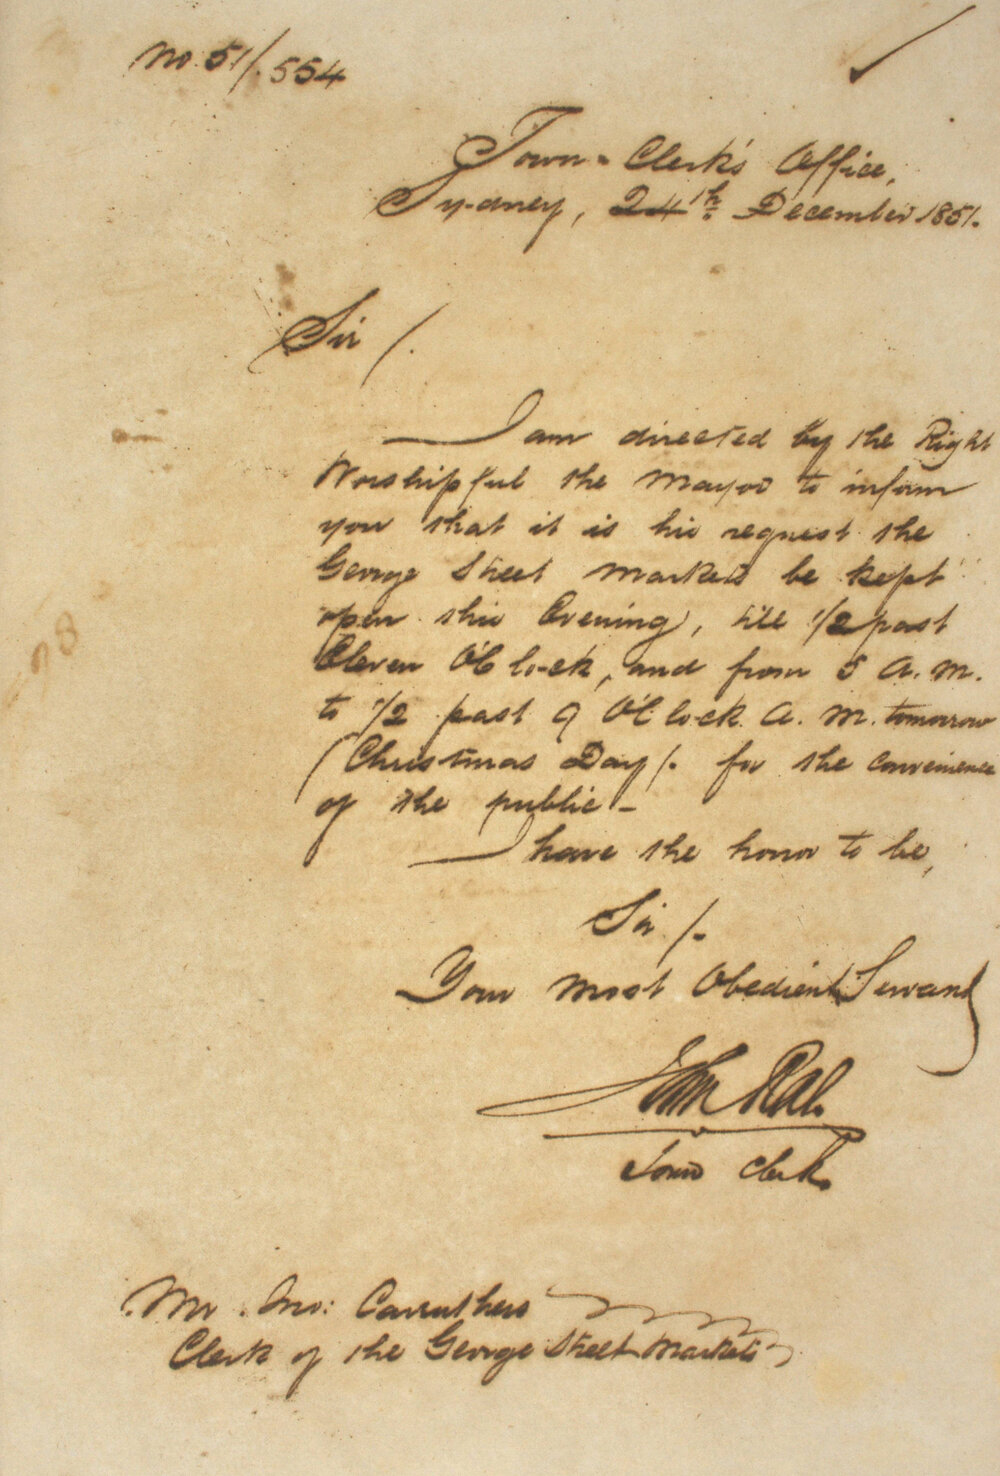 No 51/.554
Town-Clerk's Office,
Sydney, 24th December 1851.
Sir /.
I am directed by the Right
Worshipful the Mayor to inform
you that it is his request the
George Street Markets be kept
open this Evening, till 1/2 past
Eleven O'Clock, and from 5 A.M.
to 1/2 past 9 O'Clock A.M. tomorrow
(Christmas Day/. for the convenience
of the public -
I have the honor to be,
Sir /-
Your most Obedient Servant
John Rae
Town Clerk
Mr. Jno: Carruthers
Clerk of the George Street Markets